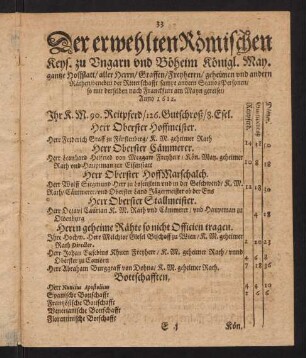 33
Der erwehlten Römischen
Keys. zu Vngarn vnd Böheim Königl. May.
gantze Hoffstatt/ aller Herrn/ Graffen/ Freyherrn/ geheimen vnd andern
Räthen wie auch der Ritterschafft sampt andern Personen/
so mit derselben nach Franckfurt am Mayn gereiset/
Anno 1612.
Ihr K. M. 90. Reitpferd/ 126. Gutschroß/ 3. Esel.
Herr Oberster Hoffmeister.
Herr Friderich Graff zu Fürstenberg/ K. M. geheimer Rath
Herr Oberster Cämmerer.
Herr Leonhard Helfrid von Meggaw Freyherr/ Kön. May. geheimer
Rath vnd Hauptman zur
Herr Hoff Marschalch.
Herr Wolff Sigmund Herr zu Losenstein vnd in der Gschwendt/ K. M.
Rath/ Cämmerer/ vnd Oberster Land Jägermeister ob der Ens
Herr Oberster Stallmeister.
Herr Octavi Cavrian K. M. Rath vnd Cämmerer/ vnd Hauptman zu
Herrn geheime Rähte so nicht Officien tragen.
Herr Melchior Glesel Bischoff zu Wien/ K. M. geheimer
Rath Director.
Herr Johan Eusebius Khuen Freyherr/ K. M. geheimer Rath/ vnnd
Oberster zu Comorn
Herr Abraham Burggraff von Dohna/ K. M. geheimer Rath.
Bottschafften.
Herr Nuncius Apostolicus
Spanische Bottschafft
Frantzösische Bottschafft
Venetianische Bottschafft
Florentinische Bottschafft
E 4
Kön.